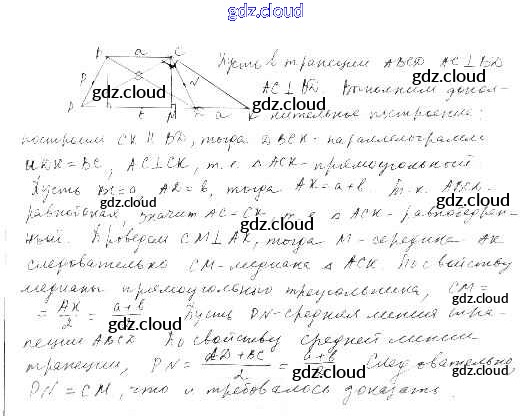 gdz.cloud
Пусть в трапеции ABCD AC⊥BD
AC⊥BD. Выполним допол-
нительное построение:
построим CK∥BD, тогда DBCK - параллелограмм
и DK=BC, AC⊥CK, т.е. △ACK - прямоугольный
Пусть BC=a, AD=b, тогда AK=a+b. Т.к. ABCD-
равнобокая, значит AC=CK, т.е. △ACK - равнобедрен-
ный. Проведём CM⊥AK, тогда M - середина AK
следовательно CM - медиана △ACK. По свойству
медианы прямоугольного треугольника, CM=
= AK/2 = (a+b)/2. Пусть PN - средняя линия тра-
пеции ABCD. По свойству средней линии
трапеции, PN = (AD+BC)/2 = (a+b)/2. Следовательно
PN=CM, что и требовалось доказать.